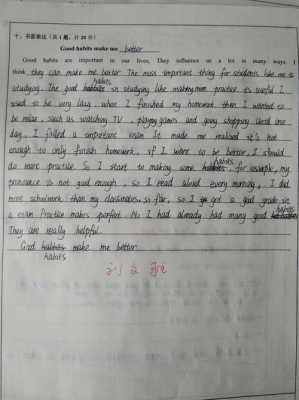 十、书面表达(共1题,计20分)
Good habits make me better
Good habits are important in our lives, They influence on a lot in many ways. I
think they can make me better. The most important thing for students like me is
studying. The good habits in studying like making more practice is useful. I
used to be very lazy. when I finished my homework then I wanted to
be relax, such as watching TV, playing games and going shopping. Until one
day, I failed a important exam. It made me realised it's not
enough to only finish homework. if I want to be better, I should
do more practice. So I start to making some habits, for example, my
pronounce is not good enough, so I read aloud every morning, I did
more schoolwork than my classmates, so far, so I got a good grade in
a exam. Practice makes perfect. No I had already had many good habits
They are really helpful.
Good habits make me better.